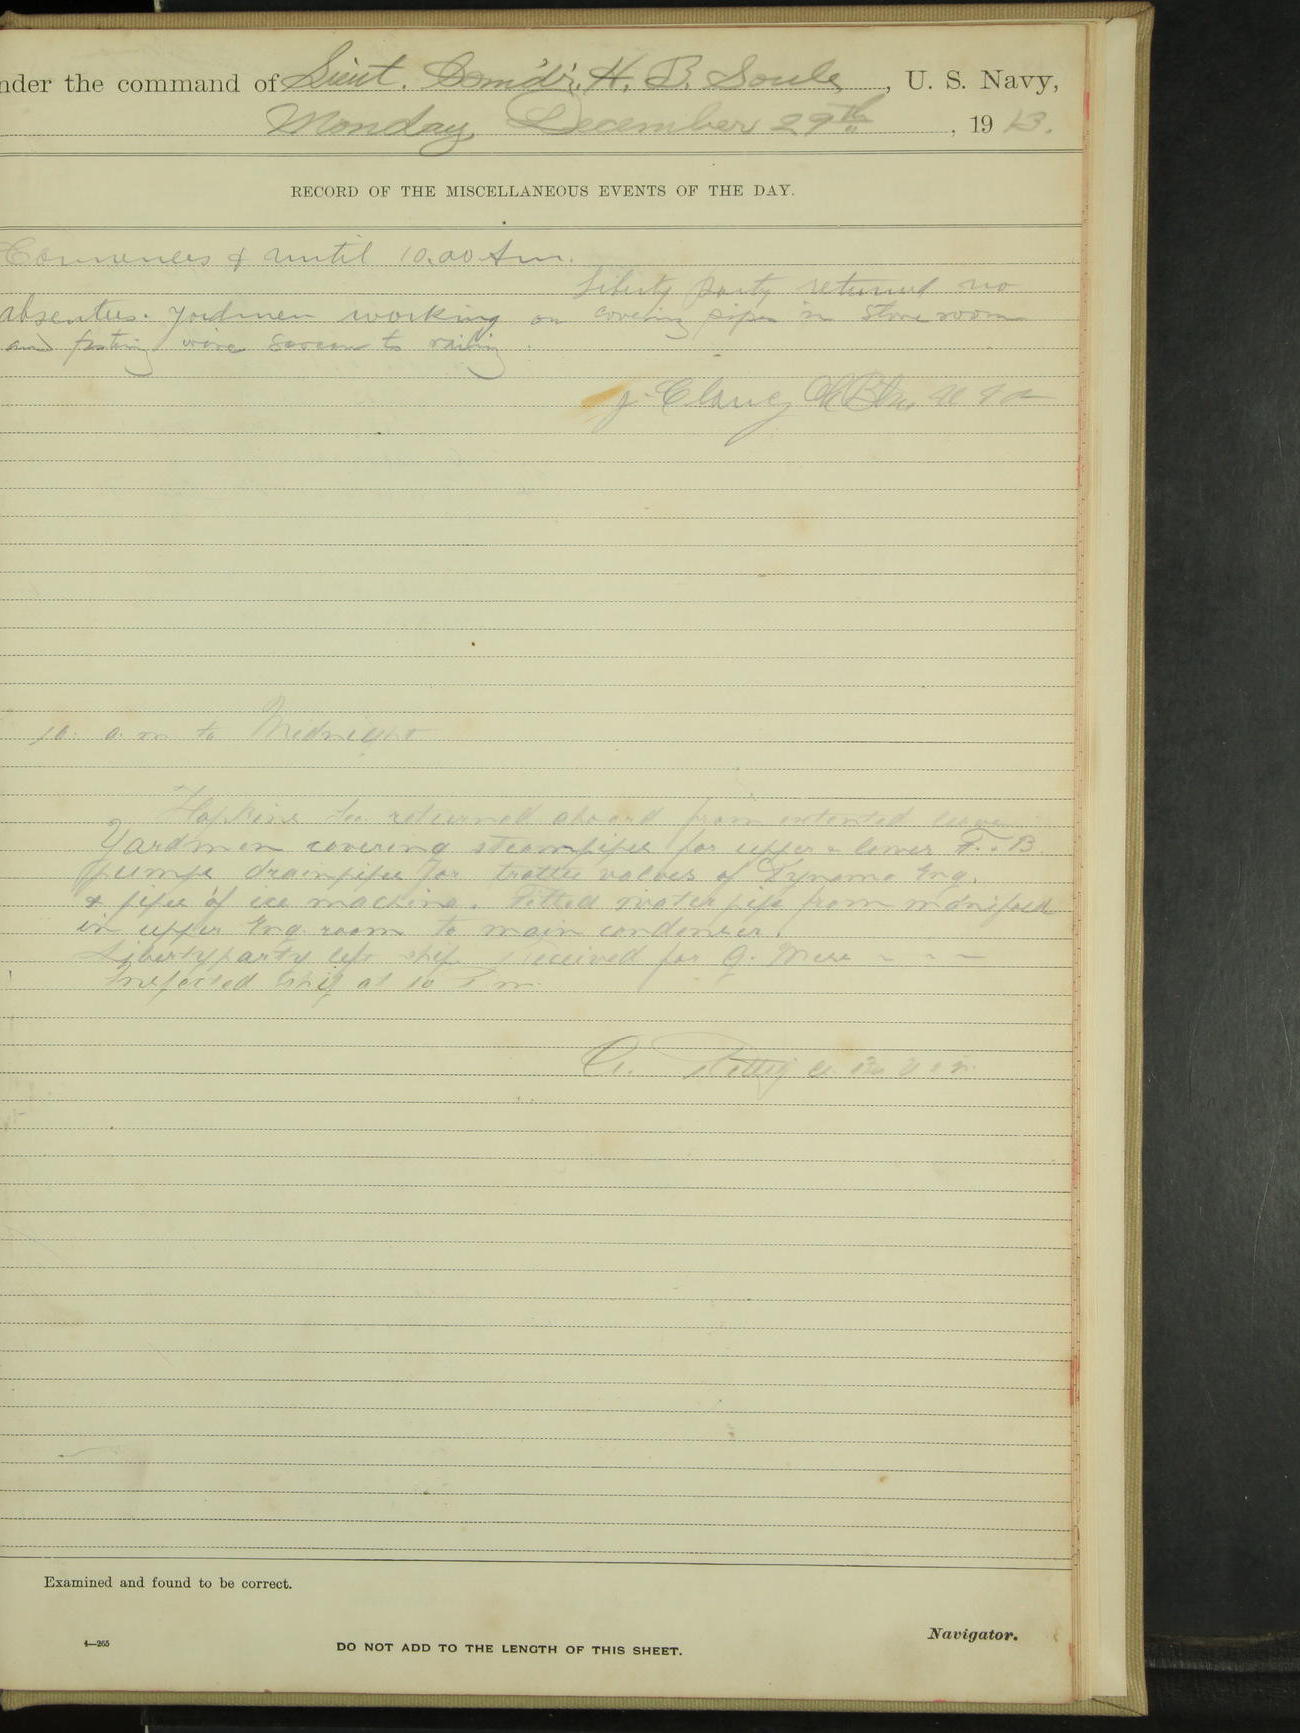 nder the command of Lieut. Comdr. H. B. Soule, U. S. Navy,
Monday, December 29th, 1913.
RECORD OF THE MISCELLANEOUS EVENTS OF THE DAY.
Commences & until 10.00 Am.
Liberty party returned no
absentees. Yardmen working on covering pipes in Store room
and fitting wire screen to railing.
J. Clancy
10. a. m to Midnight
Hopkins returned aboard from extented leave
Yardmen covering steampipes for upper & lower F. B
pumps drainpipes for trottle valves of Dynamo Eng.
& pipes of ice machine. Fitted water pipe from manifold
in upper Eng room to main condenser.
Libertyparty left ship Received for G. Mess - - -
Inspected Ship at 10 P m.
Examined and found to be correct.
Navigator.
4—265
DO NOT ADD TO THE LENGTH OF THIS SHEET.